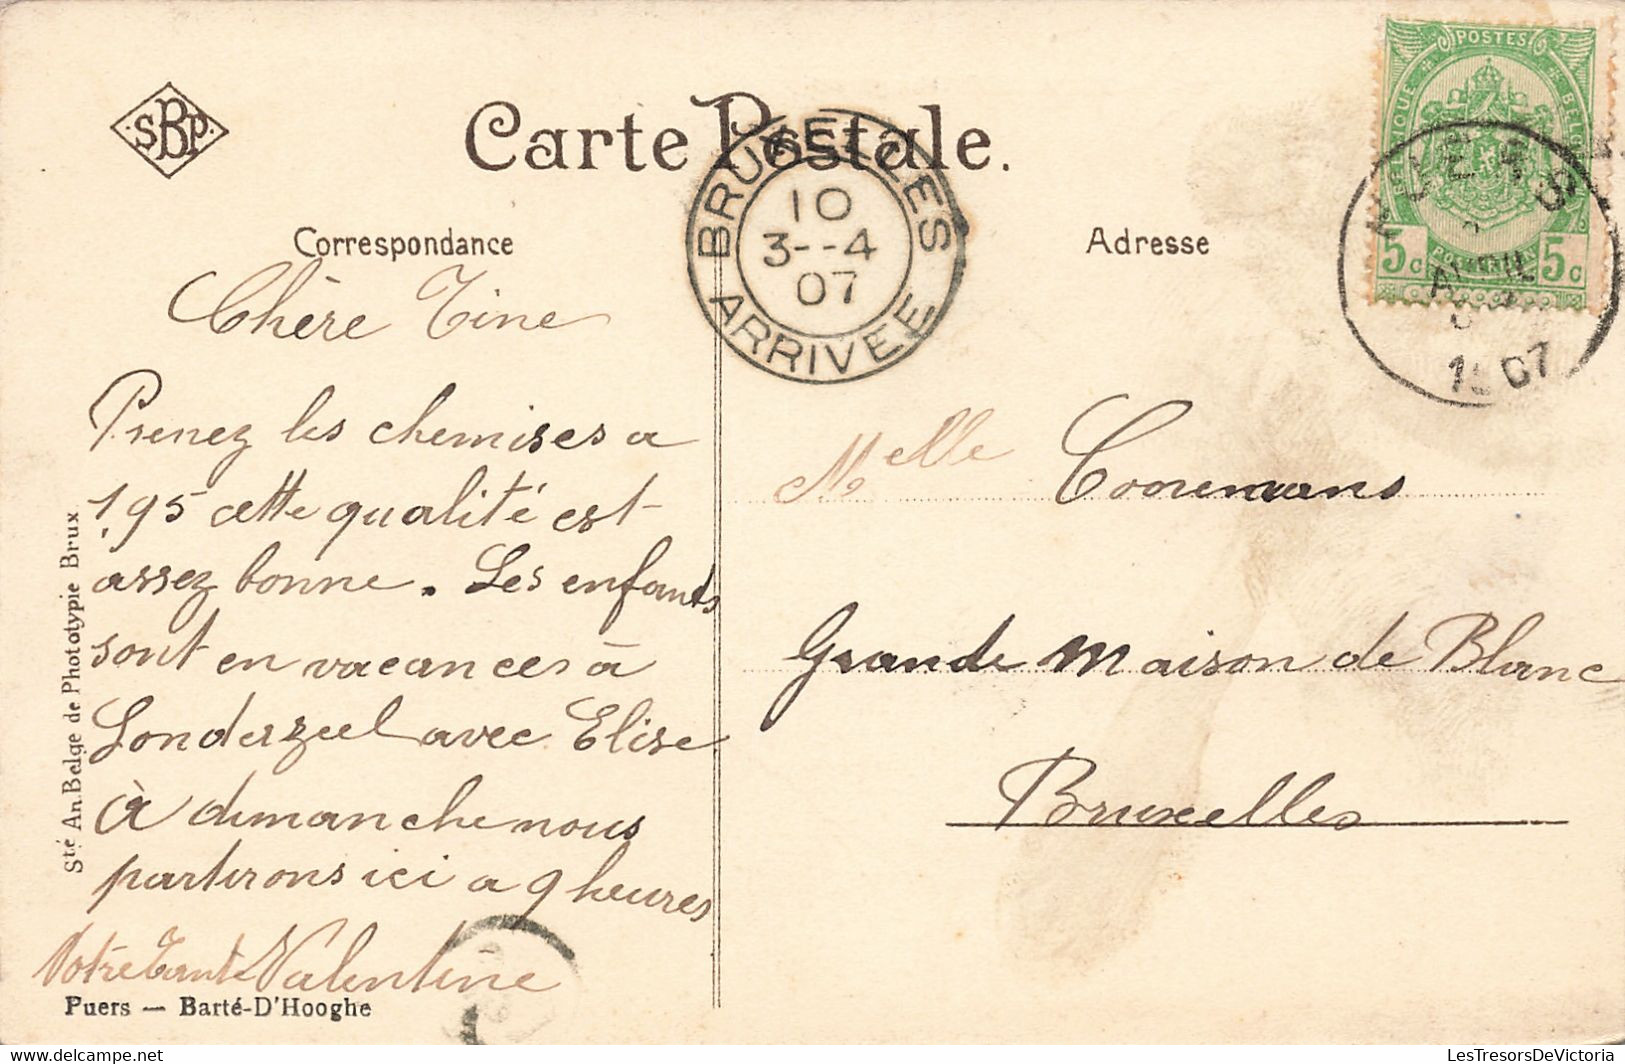 SBP
Carte Postale.
Correspondance
Adresse
BRUXELLES
10
3--4
07
ARRIVEE
POSTES
BELGIQUE
BELGIE
5c
5c
AVRIL
1907
Chère Tine
Prenez les chemises a
1,95 cette qualité est
assez bonne. Les enfants
sont en vacances à
Londerzeel avec Elise
à dimanche nous
partirons ici a 9 heures
Votre Tante Valentine
Melle Cooremans
Grande Maison de Blanc
Bruxelles
Sté An. Belge de Phototypie Brux
Puers — Barté-D'Hooghe
www.delcampe.net
LesTresorsDeVictoria